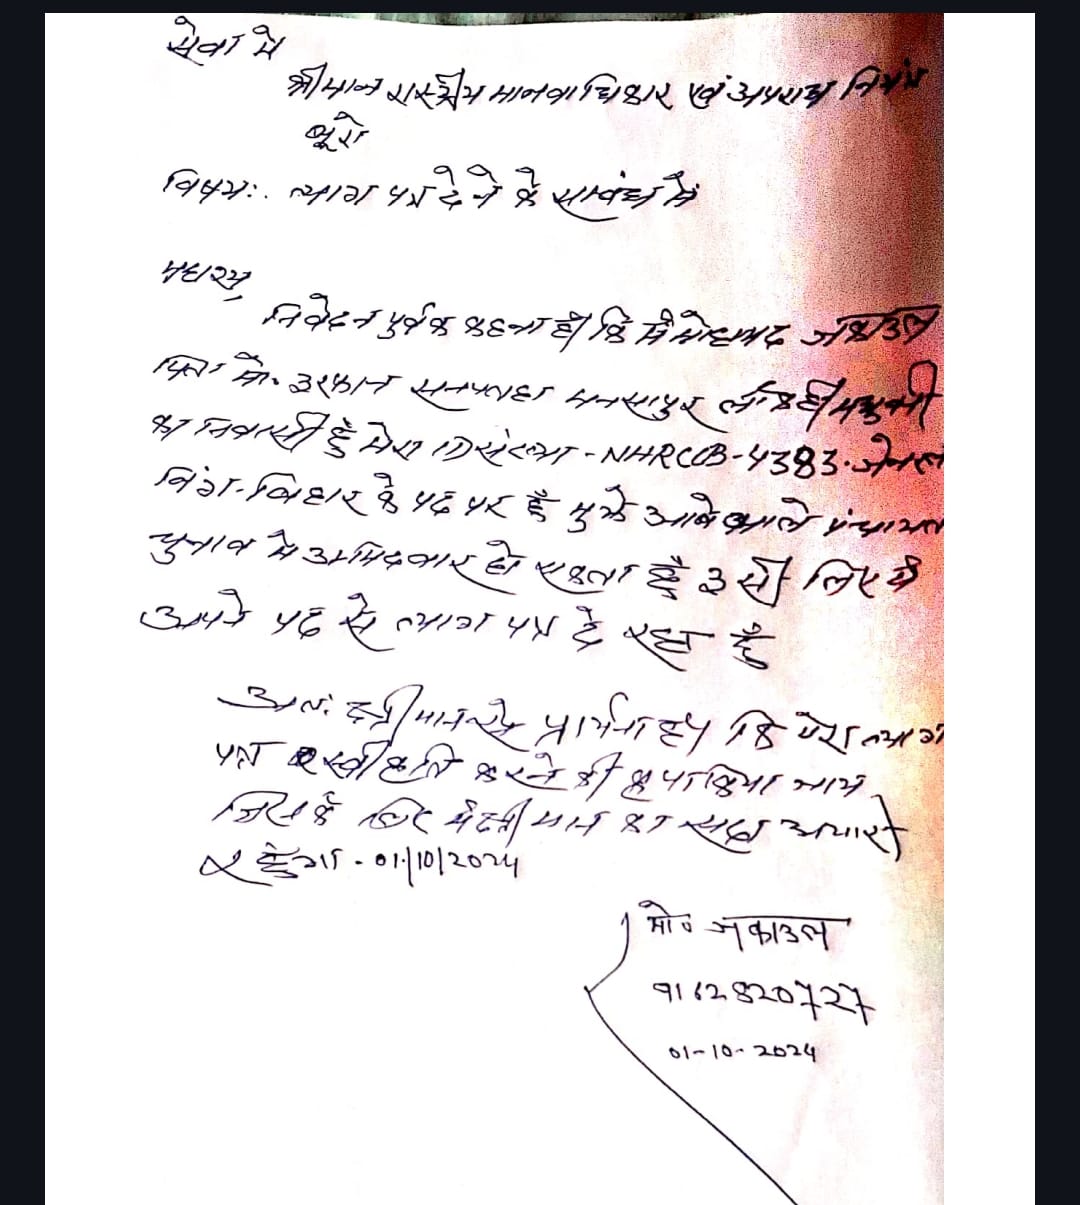 सेवा में
श्रीमान राष्ट्रीय मानवाधिकार एवं अपराध नियंत्र
ब्यूरो
विषय:. त्याग पत्र देने के सम्बंध में
महाशय,
निवेदन पुर्वक कहना है कि मैं मोहम्मद जकाउल
पिता मो. इरफान मनसापुर लौकही मधुबनी
का निवासी हूँ मेरा ID संख्या - NHRCCB-4383.
विंग. बिहार के पद पर हूँ मुझे आने वाले पंचायत
चुनाव में उम्मिदवार हो सकता हूँ इसी लिए मैं
अपने पद से त्याग पत्र दे रहा हूँ
अतः श्री मान से प्रार्थना है कि मेरा त्याग
पत्र स्वीकृति करने की कृपा किया जाय
जिसके लिए मैं श्री मान का सदा आभारी
रहूँगा - 01/10/2024
मो० जकाउल
9162820727
01-10-2024